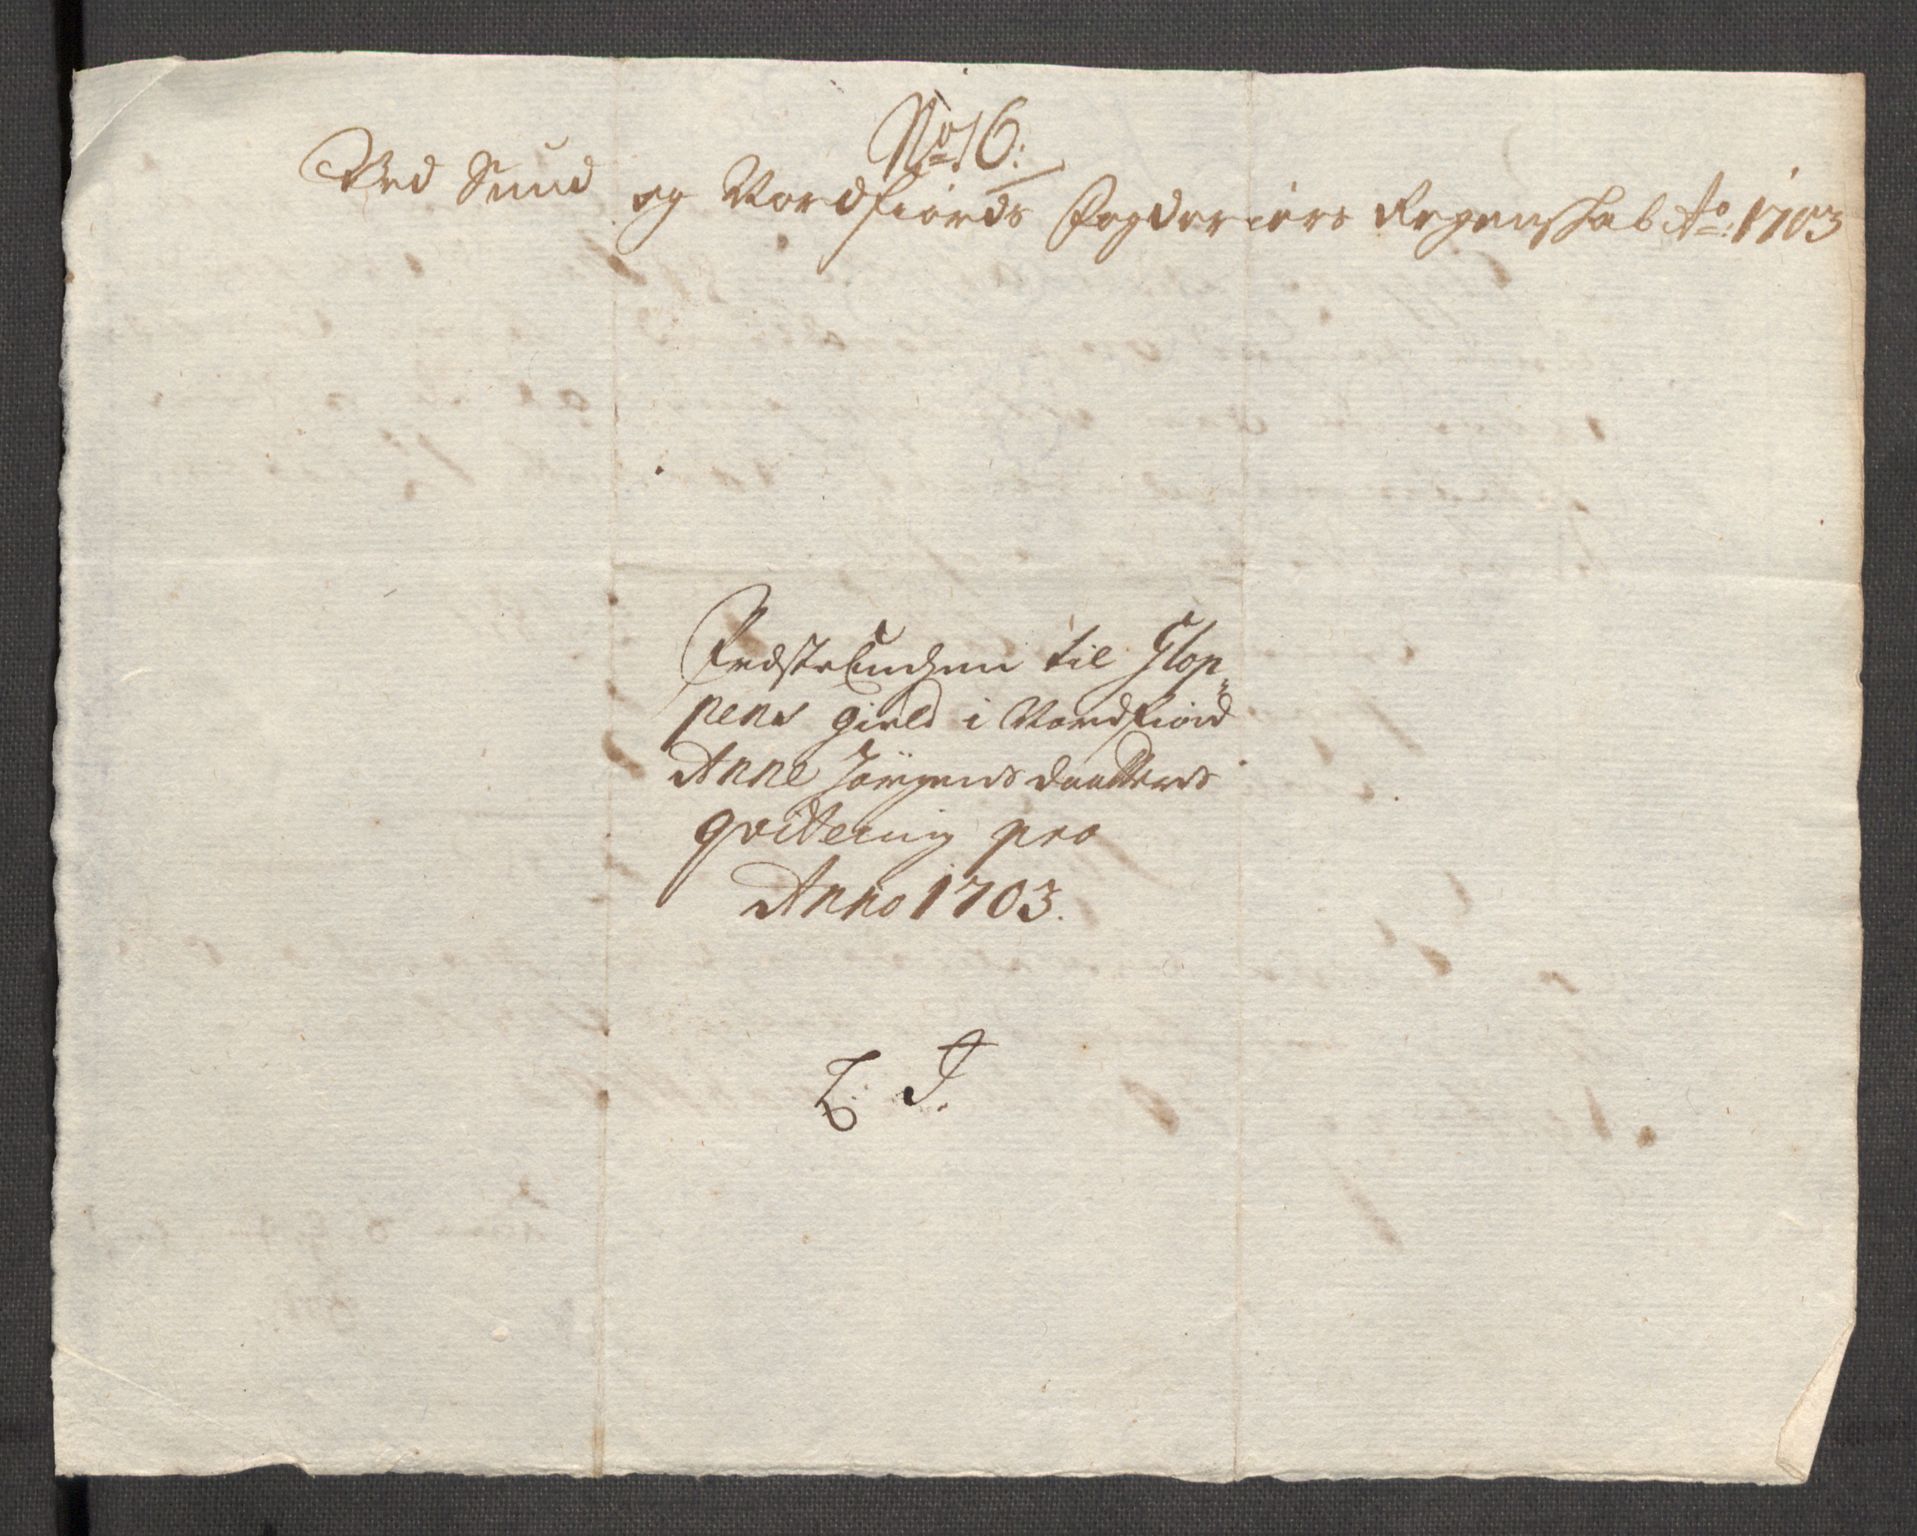 No 16:
Ved Sund og Nordfiords Fogderiers Regenschab Ao: 1703
Prestekudzen til Glop-
pens gield i Nordfiord
Anne Jørgens daatters
qvitering pro
Anno 1703.
L. J.